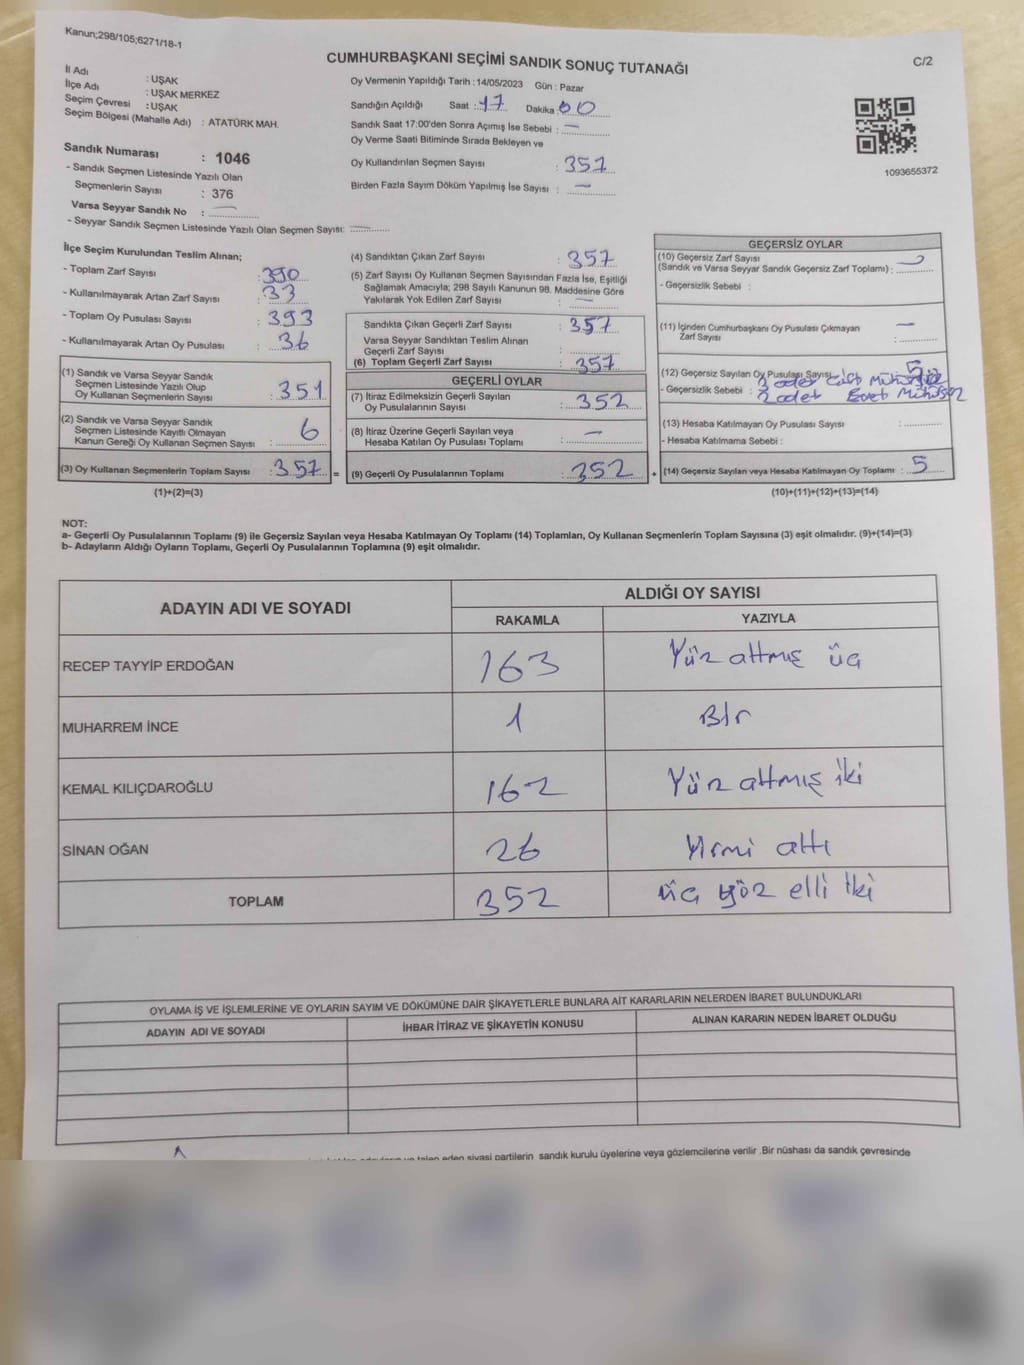 Kanun;298/105;6271/18-1
CUMHURBAŞKANI SEÇİMİ SANDIK SONUÇ TUTANAĞI
C/2
İl Adı : UŞAK
İlçe Adı : UŞAK MERKEZ
Seçim Çevresi : UŞAK
Seçim Bölgesi (Mahalle Adı) : ATATÜRK MAH.
Sandık Numarası : 1046
- Sandık Seçmen Listesinde Yazılı Olan
Seçmenlerin Sayısı : 376
Varsa Seyyar Sandık No : —
- Seyyar Sandık Seçmen Listesinde Yazılı Olan Seçmen Sayısı: —
Oy Vermenin Yapıldığı Tarih : 14/05/2023 Gün : Pazar
Sandığın Açıldığı Saat : 17 Dakika : 00
Sandık Saat 17:00'den Sonra Açımış İse Sebebi : —
Oy Verme Saati Bitiminde Sırada Bekleyen ve
Oy Kullandırılan Seçmen Sayısı : 357
Birden Fazla Sayım Döküm Yapılmış İse Sayısı : —
1093655372
İlçe Seçim Kurulundan Teslim Alınan;
- Toplam Zarf Sayısı : 390
- Kullanılmayarak Artan Zarf Sayısı : 33
- Toplam Oy Pusulası Sayısı : 393
- Kullanılmayarak Artan Oy Pusulası : 36
(1) Sandık ve Varsa Seyyar Sandık
Seçmen Listesinde Yazılı Olup
Oy Kullanan Seçmenlerin Sayısı : 351
(2) Sandık ve Varsa Seyyar Sandık
Seçmen Listesinde Kayıtlı Olmayan
Kanun Gereği Oy Kullanan Seçmen Sayısı : 6
(3) Oy Kullanan Seçmenlerin Toplam Sayısı : 357 =
(1)+(2)=(3)
(4) Sandıktan Çıkan Zarf Sayısı : 357
(5) Zarf Sayısı Oy Kullanan Seçmen Sayısından Fazla İse, Eşitliği
Sağlamak Amacıyla; 298 Sayılı Kanunun 98. Maddesine Göre
Yakılarak Yok Edilen Zarf Sayısı : —
Sandıkta Çıkan Geçerli Zarf Sayısı : 357
Varsa Seyyar Sandıktan Teslim Alınan
Geçerli Zarf Sayısı :
(6) Toplam Geçerli Zarf Sayısı : 357
GEÇERLİ OYLAR
(7) İtiraz Edilmeksizin Geçerli Sayılan
Oy Pusulalarının Sayısı : 352
(8) İtiraz Üzerine Geçerli Sayılan veya
Hesaba Katılan Oy Pusulası Toplamı : —
(9) Geçerli Oy Pusulalarının Toplamı : 352 +
GEÇERSİZ OYLAR
(10) Geçersiz Zarf Sayısı
(Sandık ve Varsa Seyyar Sandık Geçersiz Zarf Toplamı) : —
- Geçersizlik Sebebi :
(11) İçinden Cumhurbaşkanı Oy Pusulası Çıkmayan
Zarf Sayısı : —
(12) Geçersiz Sayılan Oy Pusulası Sayısı : 5
- Geçersizlik Sebebi : 3 adet Çift
2 adet Evet Mühürsüz
(13) Hesaba Katılmayan Oy Pusulası Sayısı :
- Hesaba Katılmama Sebebi :
(14) Geçersiz Sayılan veya Hesaba Katılmayan Oy Toplamı : 5
(10)+(11)+(12)+(13)=(14)
NOT:
a- Geçerli Oy Pusulalarının Toplamı (9) ile Geçersiz Sayılan veya Hesaba Katılmayan Oy Toplamı (14) Toplamları, Oy Kullanan Seçmenlerin Toplam Sayısına (3) eşit olmalıdır. (9)+(14)=(3)
b- Adayların Aldığı Oyların Toplamı, Geçerli Oy Pusulalarının Toplamına (9) eşit olmalıdır.
ADAYIN ADI VE SOYADI
ALDIĞI OY SAYISI
RAKAMLA YAZIYLA
RECEP TAYYİP ERDOĞAN 163 Yüz altmış üç
MUHARREM İNCE 1 Bir
KEMAL KILIÇDAROĞLU 162 Yüz altmış iki
SİNAN OĞAN 26 Yirmi altı
TOPLAM 352 üç yüz elli iki
OYLAMA İŞ VE İŞLEMLERİNE VE OYLARIN SAYIM VE DÖKÜMÜNE DAİR ŞİKAYETLERLE BUNLARA AİT KARARLARIN NELERDEN İBARET BULUNDUKLARI
ADAYIN ADI VE SOYADI İHBAR İTİRAZ VE ŞİKAYETİN KONUSU ALINAN KARARIN NEDEN İBARET OLDUĞU
talep eden siyasi partilerin sandık kurulu üyelerine veya gözlemcilerine verilir .Bir nüshası da sandık çevresinde